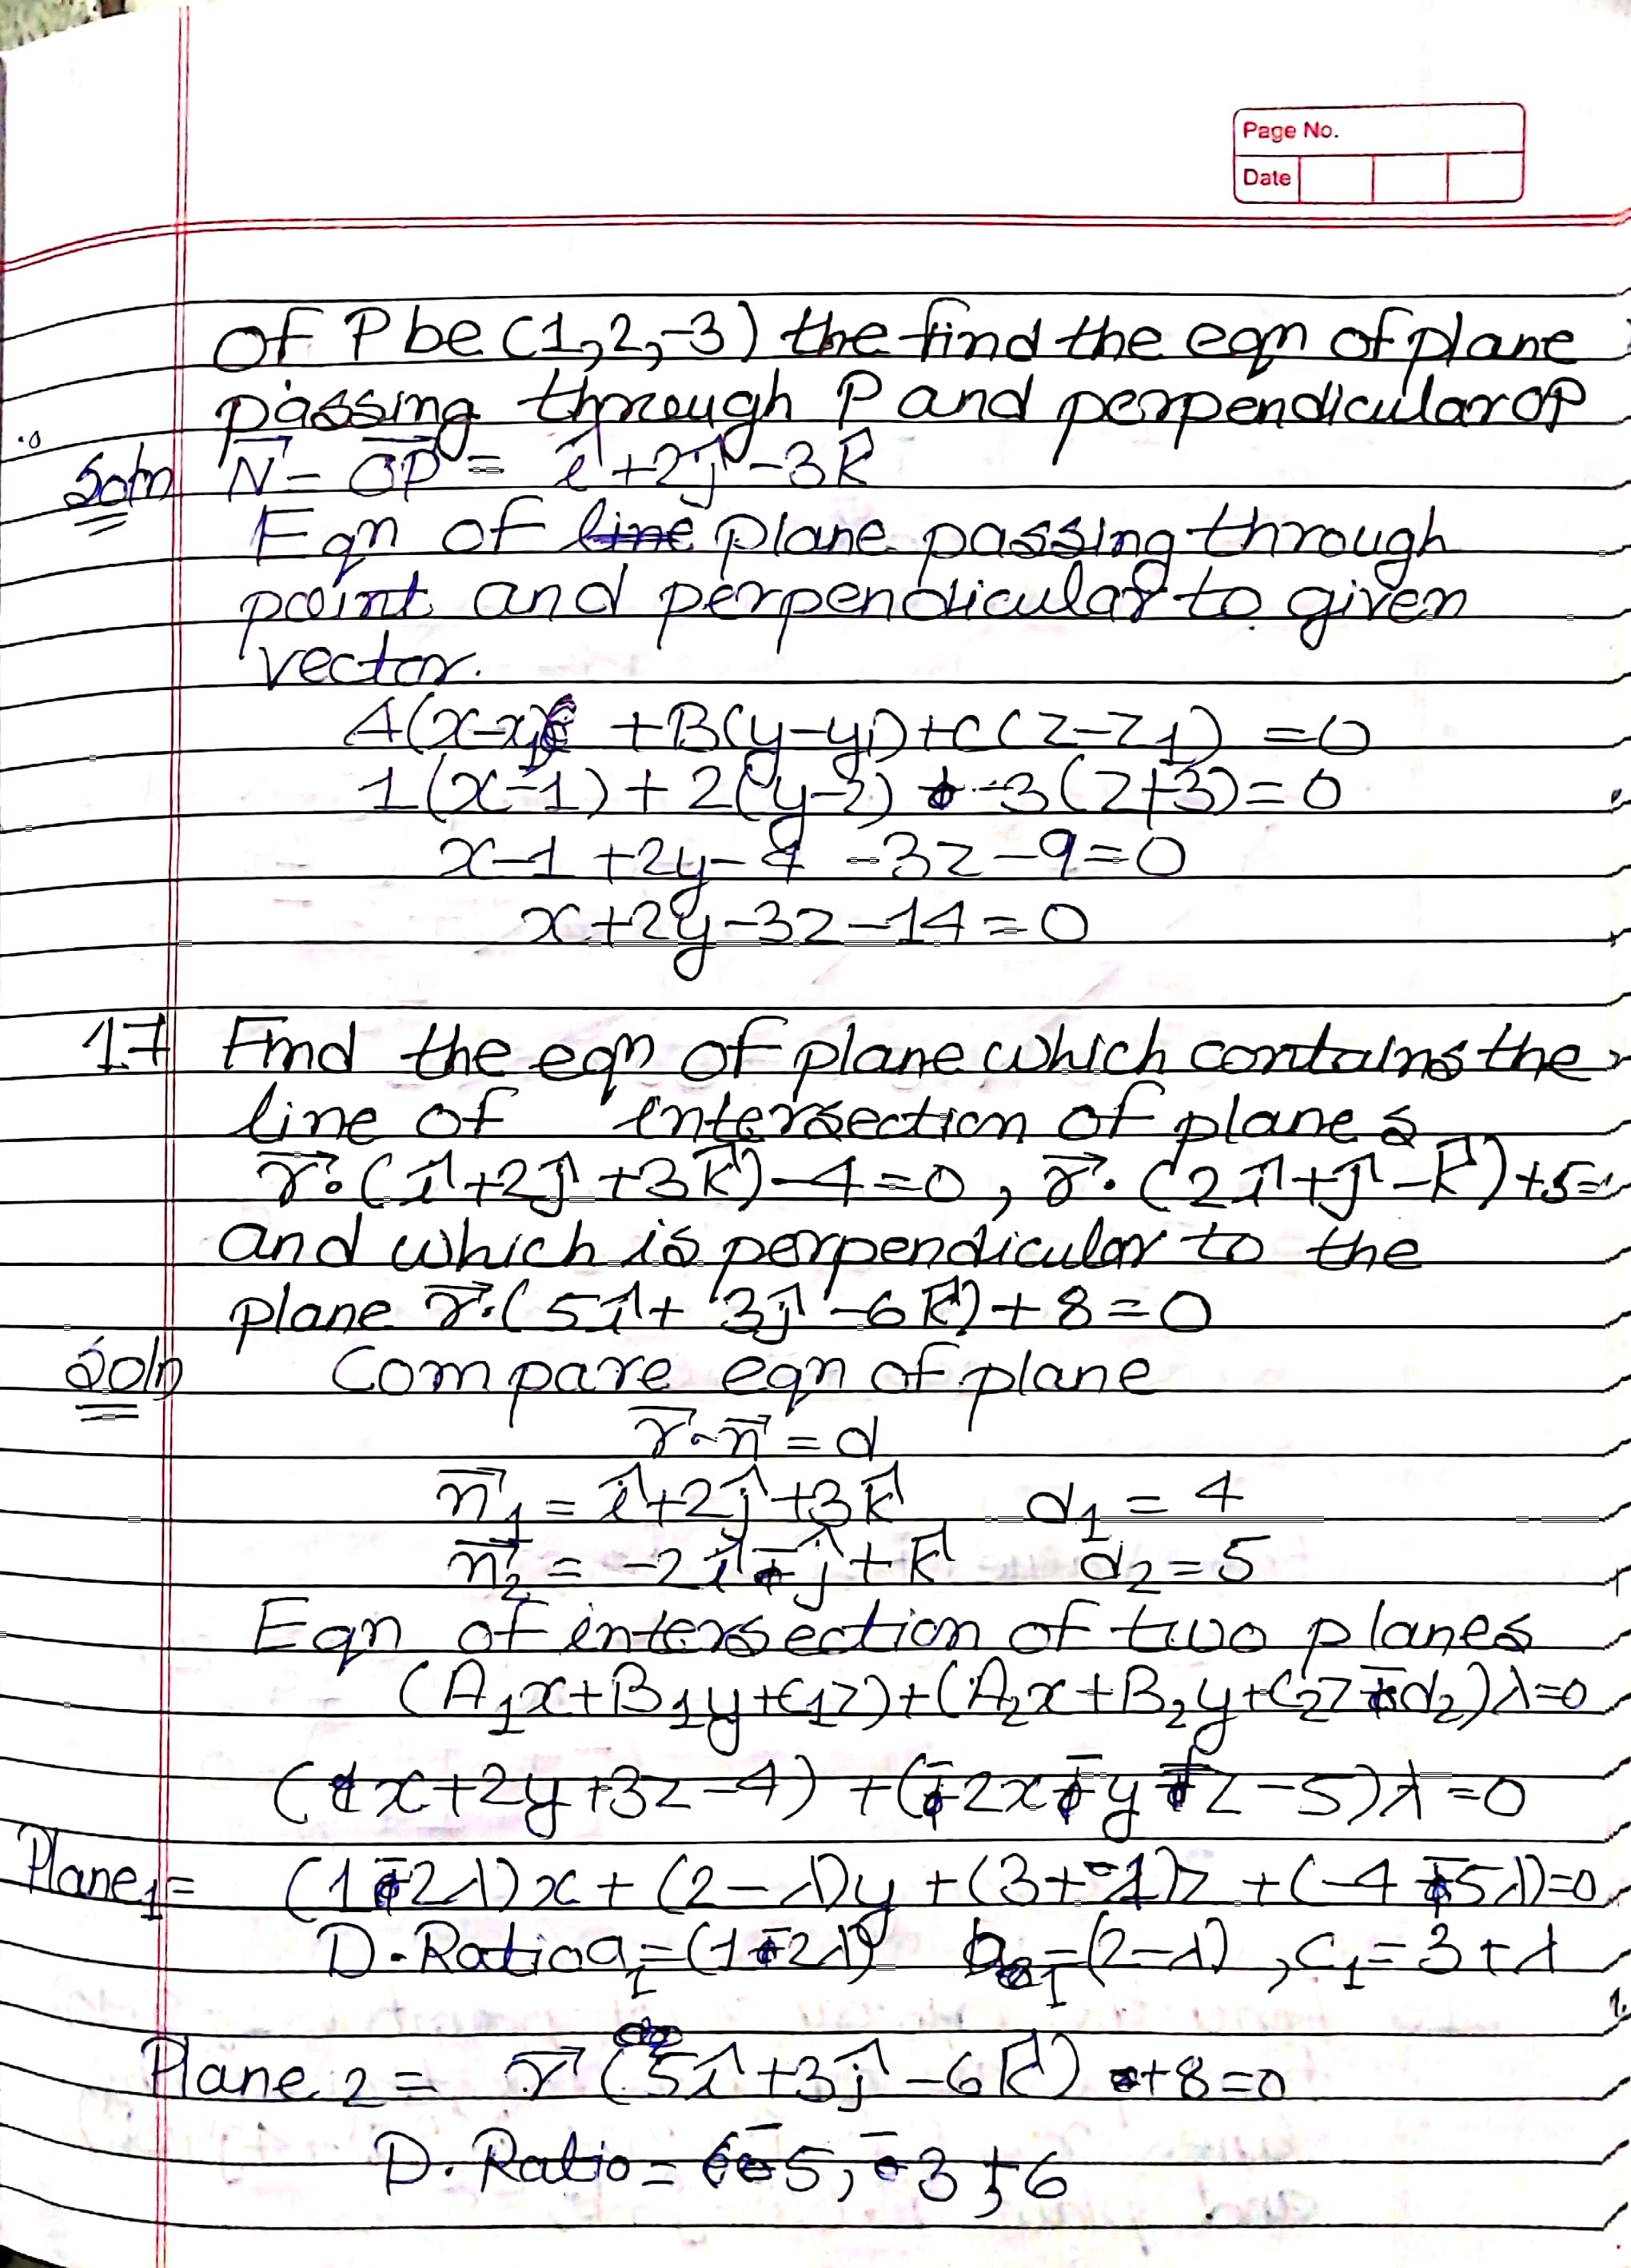 Page No.
Date
of P be (1,2,-3) the find the eqn of plane
passing through P and perpendicular OP
Soln N⃗ = OP⃗ = î+2ĵ-3k̂
Eqn of plane passing through
point and perpendicular to given
vector.
A(x-x1) +B(y-y1)+C(z-z1) =0
1(x-1)+2(y-2) -3(z+3)=0
x-1+2y-4-3z-9=0
x+2y-3z-14=0
17 Find the eqn of plane which contains the
line of intersection of planes
r⃗.(î+2ĵ+3k̂)-4=0, r⃗.(2î+ĵ-k̂)+5=
and which is perpendicular to the
plane r⃗.(5î+3ĵ-6k̂)+8=0
Soln Compare eqn of plane
r⃗.n⃗=d
n⃗1 = î+2ĵ+3k̂ d1 = 4
n⃗2 = -2î-ĵ+k̂ d2=5
Eqn of intersection of two planes
(A1x+B1y+C1z)+(A2x+B2y+C2z-d2)λ=0
(x+2y+3z-4)+(-2x-y+z-5)λ=0
Plane1= (1-2λ)x+(2-λ)y+(3+λ)z+(-4-5λ)=0
D.Ratio a1=(1-2λ) b1=(2-λ), c1=3+λ
Plane 2 = r⃗(5î+3ĵ-6k̂) +8=0
D.Ratio= -5, -3, +6